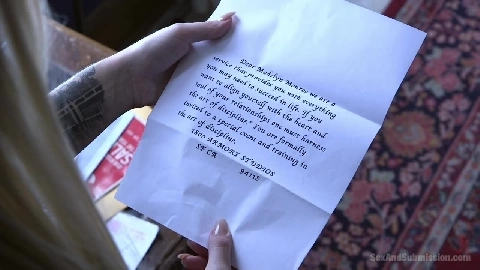 Dear Madelyn Monroe we are a
service that provides you with everything
you may need to succeed in life. If you
want to align yourself with the heart and
soul of your relationships one must harness
the art of discipline. You are formally
invited to a special event and training in
the art of discipline.
1800 ARMORY STUDIOS
SF CA 94115
SexAndSubmission.com